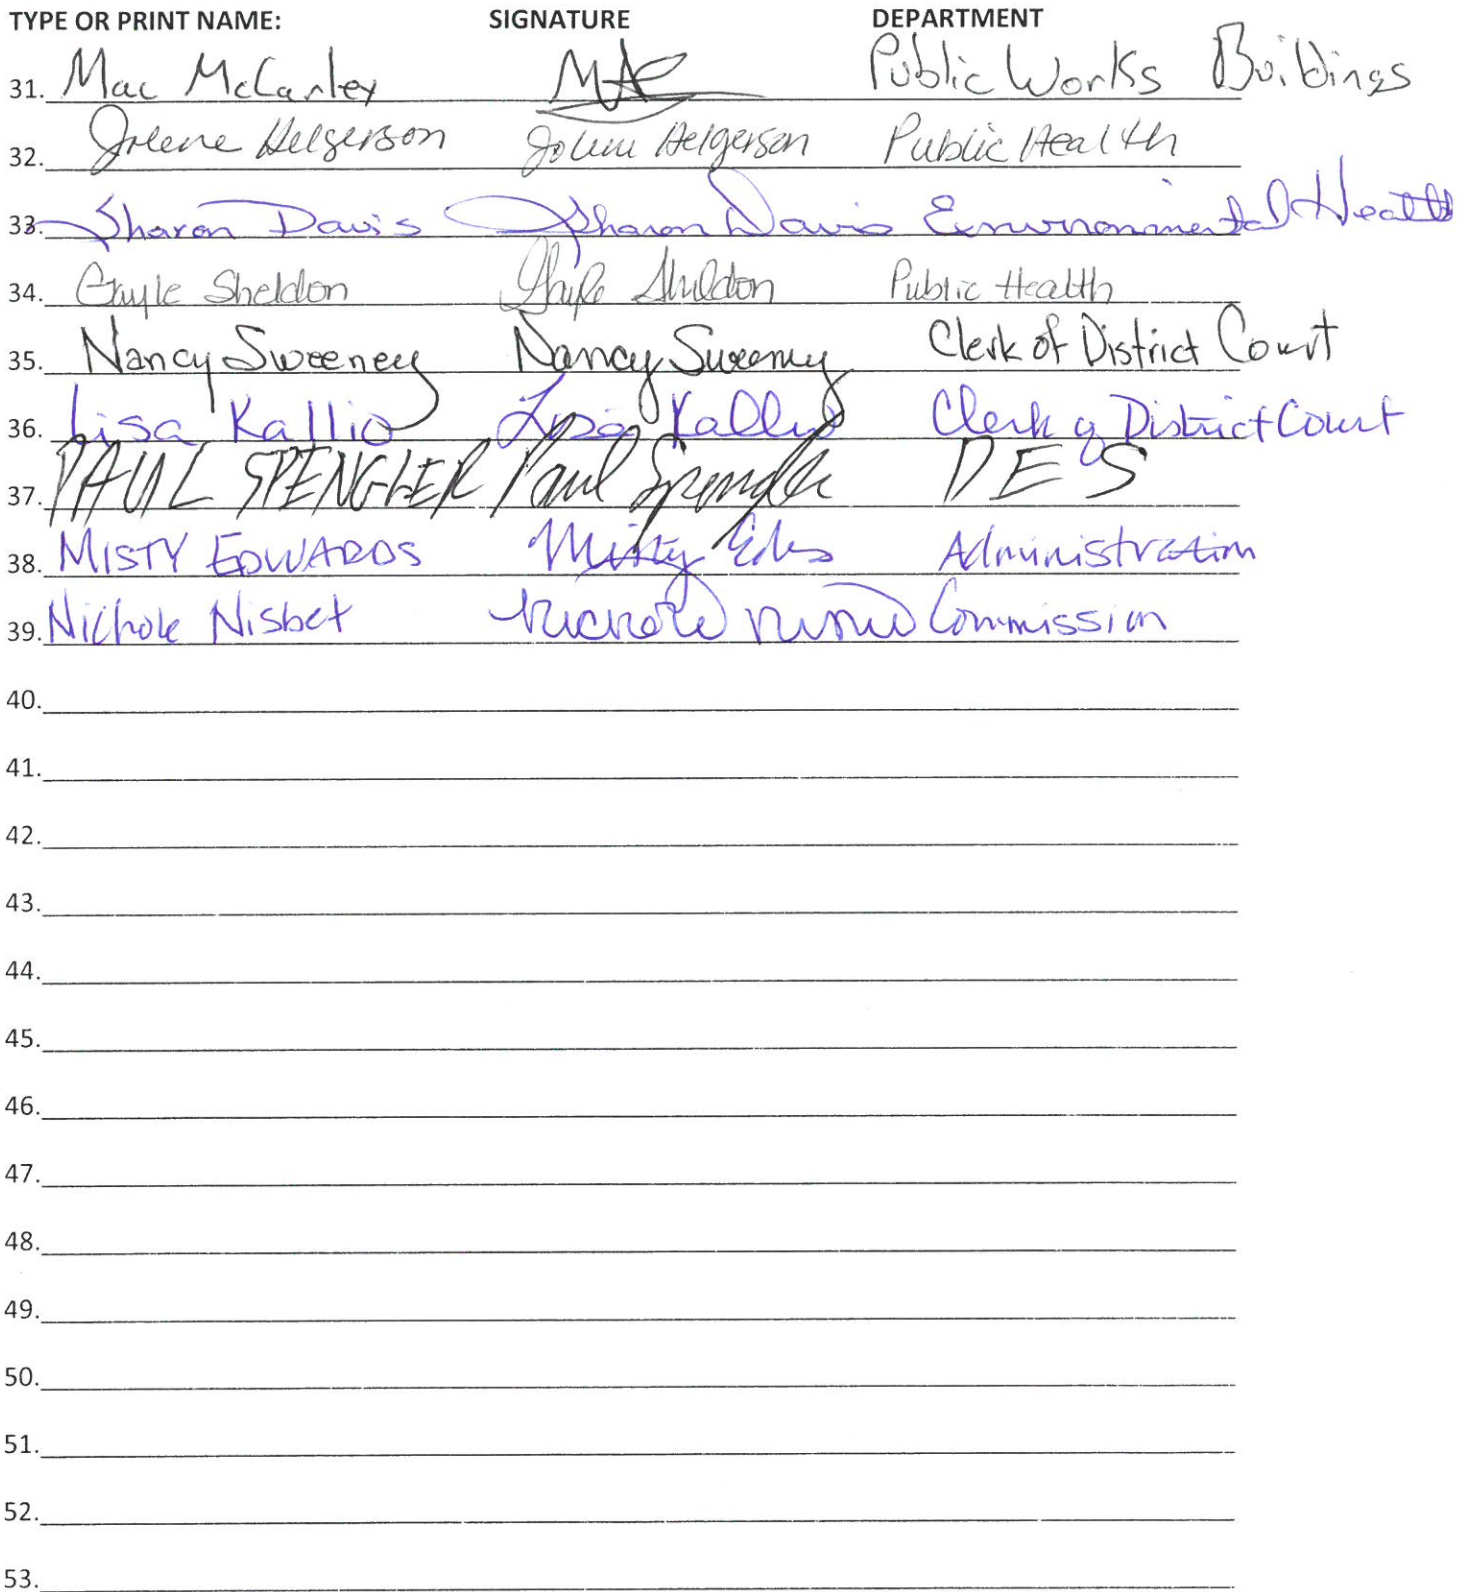 TYPE OR PRINT NAME: SIGNATURE DEPARTMENT
31. Mac McCarley Public Works Buildings
32. Jolene Helgerson Jolene Helgerson Public Health
33. Sharon Davis Sharon Davis Environmental Health
34. Gayle Sheldon Gayle Sheldon Public Health
35. Nancy Sweeney Nancy Sweeney Clerk of District Court
36. Lisa Kallio Lisa Kallio Clerk of District Court
37. PAUL SPENGLER Paul Spengler DES
38. MISTY EDWARDS Misty Administration
39. Nichole Nisbet Nichole Commission
40.
41.
42.
43.
44.
45.
46.
47.
48.
49.
50.
51.
52.
53.